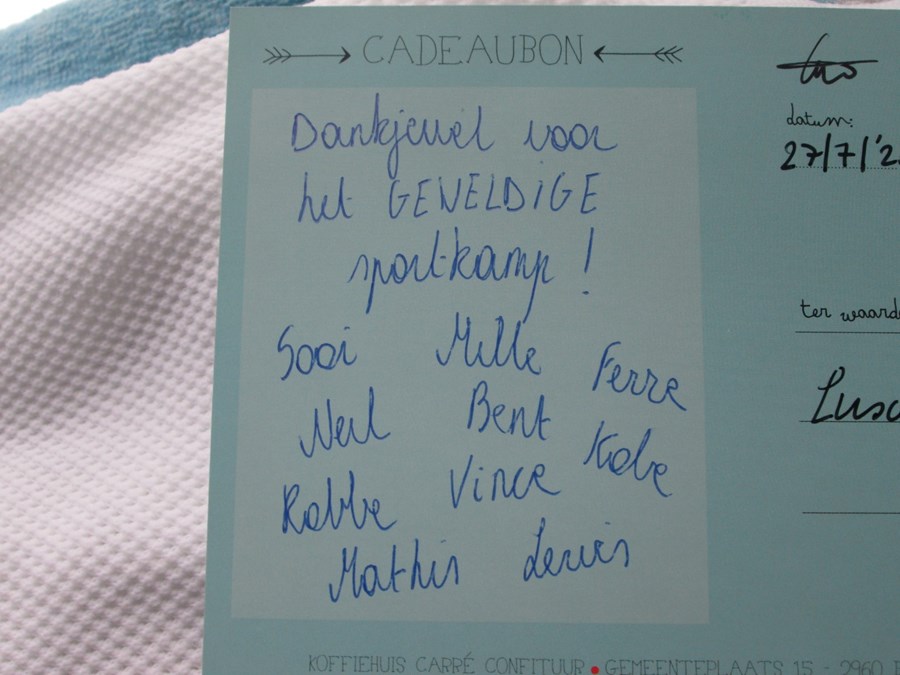 CADEAUBON
Dankjewel voor
het GEWELDIGE
sportkamp!
Sooi Mille Ferre
Neil Bent Kobe
Robbe Vince
Mathis Lewis
datum:
27/7/'2
ter waarde
KOFFIEHUIS CARRÉ CONFITUUR • GEMEENTEPLAATS 15 - 2960